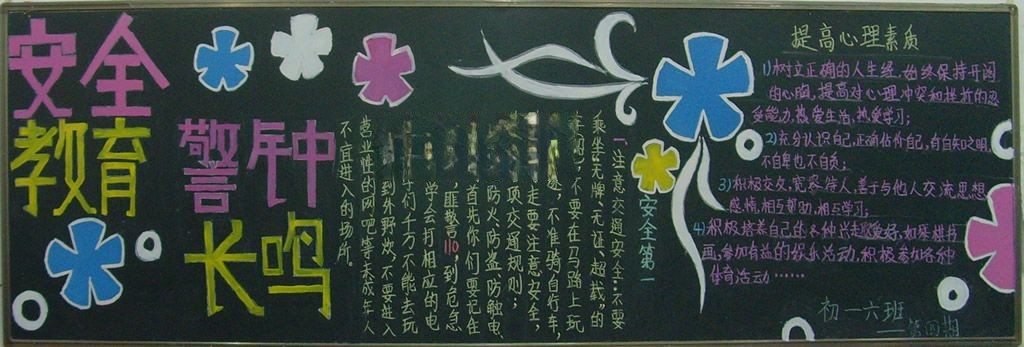 安全
教育
警钟
长鸣
安全第一
一、注意交通安全：不要
乘坐“无牌、无证、超载”的
车辆，不要在马路上玩
，不准骑自行车，
走要注意安全，
项交通规则；
防火防盗防触电，
首先你们要记住
匪警110，到危急
学会打相应的电
学们千万不能去玩
到外野炊，不要进入
营业性的网吧等未成年人
不宜进入的场所。
提高心理素质
1）树立正确的人生经，始终保持开阔
的心胸，提高对心理冲突和挫折的忍
受能力，热爱生活，热爱学习；
2）充分认识自己，正确估价自己，有自知之明，
不自卑也不自负；
3）积极交友，宽容待人，善于与他人交流思想
感情，相互帮助，相互学习；
4）积极培养自己的各种兴趣爱好，如琴棋书
画，参加有益的娱乐活动，积极参加各种
体育活动……
初一六班
第四期